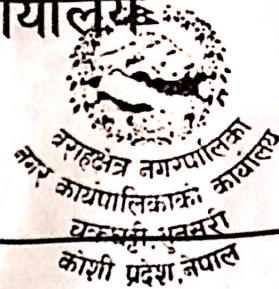 यालय
बराहक्षेत्र नगरपालिका
नगर कार्यपालिकाको कार्यालय
चक्रघट्टी, सुनसरी
कोशी प्रदेश, नेपाल